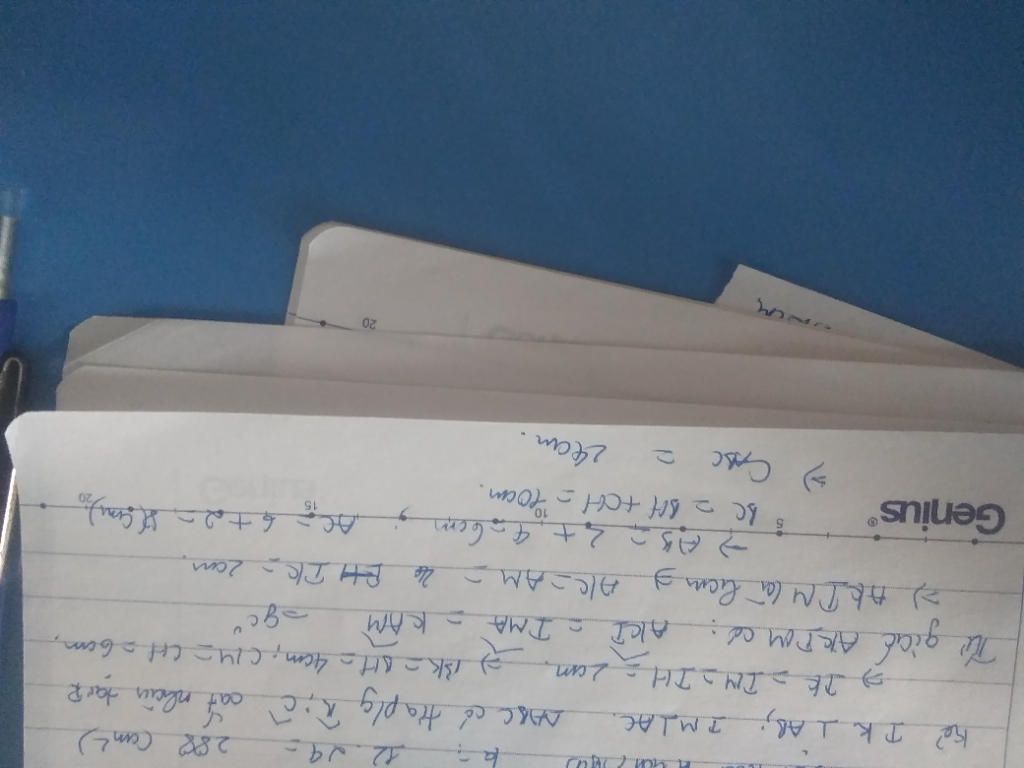 R = 12.29 = 288 (cm²)
Kẻ IK ⊥ AB; IM ⊥ AC. ΔABC có tia p/g B̂; Ĉ cắt nhau tại I
⇒ IK = IM = IH = 2cm. ⇒ BK = BH = 4cm; CM = CH = 6cm.
Tứ giác AKIM có: AKI = IMA = KAM = 90°
⇒ AKIM là hcm ⇒ AK = AM = IK = 2cm
⇒ AB = 2 + 4 = 6cm; AC = 6 + 2 = 8(cm).
BC = BH + CH = 10cm.
⇒ C ABC = 24cm.
Genius®
5 10 15 20
20